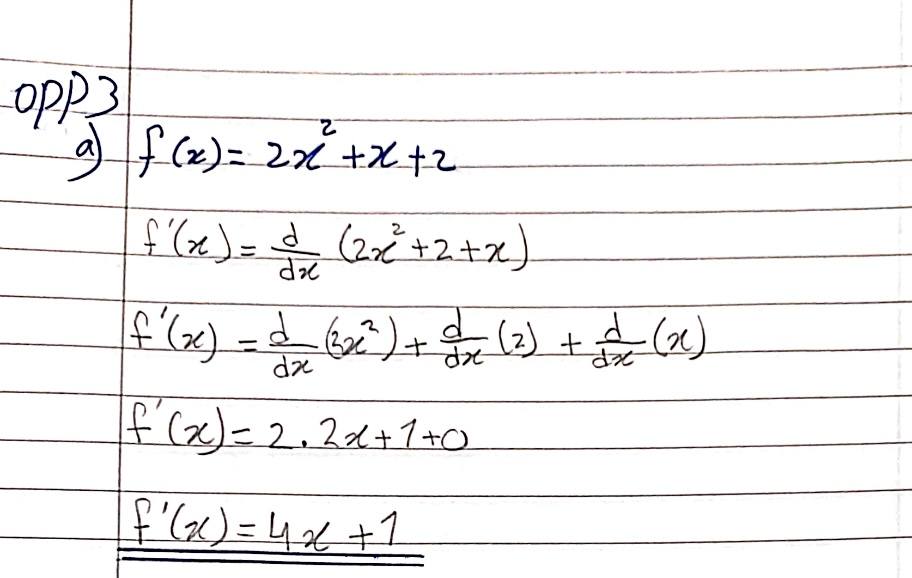 OPP3
a) f(x) = 2x² + x + 2
f'(x) = d/dx (2x² + 2 + x)
f'(x) = d/dx (3x²) + d/dx (2) + d/dx (x)
f'(x) = 2 . 2x + 1 + 0
f'(x) = 4x + 1